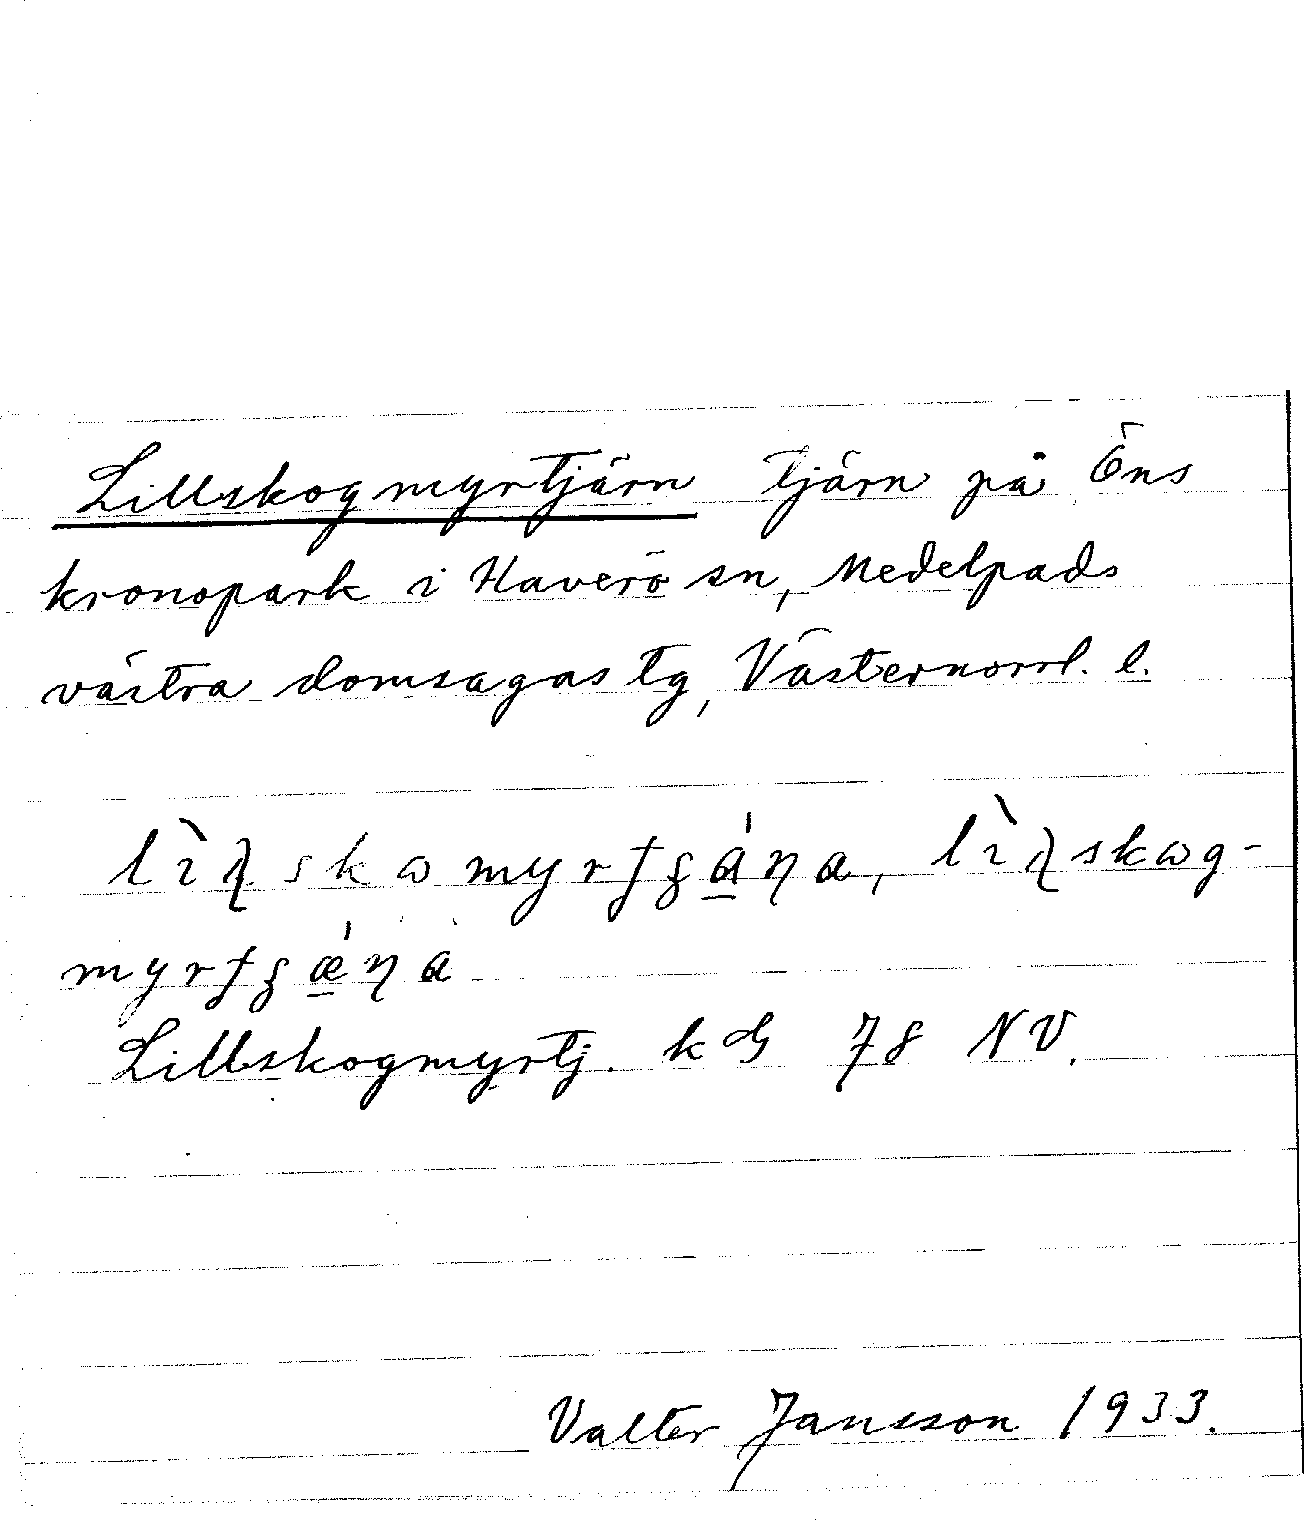 Lillskogmyrtjärn tjärn på Öns
kronopark i Haverö sn, Medelpads
västra domsagas tg, Västernorrl. l.
Lillskogmyrtj. kG 78 NV.
Valter Jansson 1933.